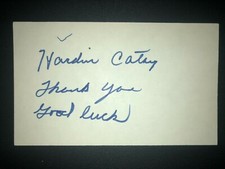 Hardin Catsy
Thank you
Good luck